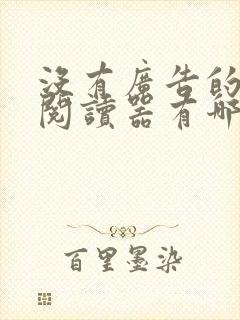 沒有廣告的
閱讀器有哪
百里墨染